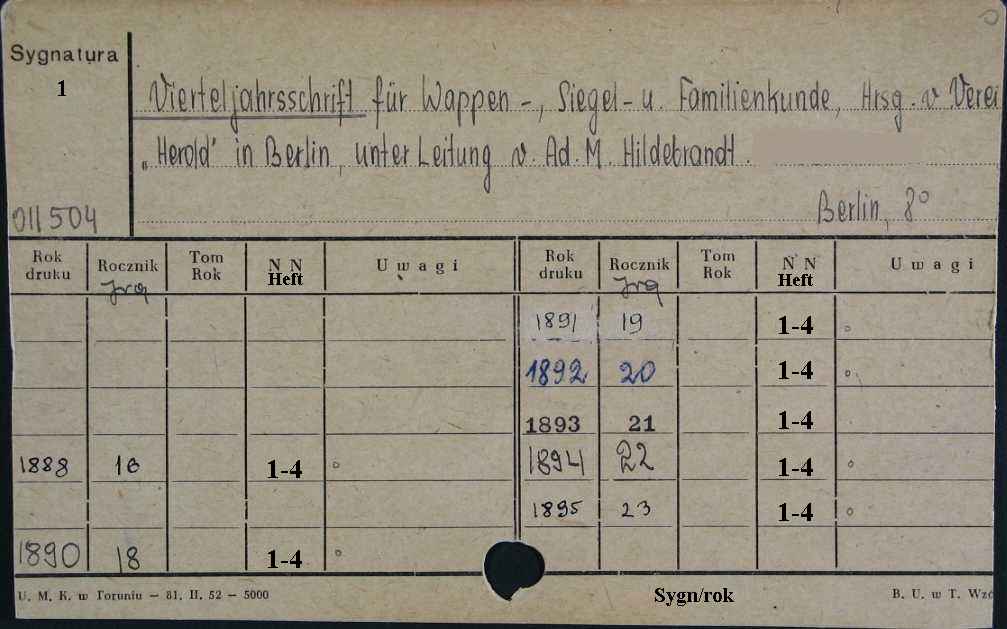 Sygnatura
1
Vierteljahrsschrift für Wappen -, Siegel - u. Familienkunde, Hrsg. v Verei
„Herold" in Berlin, unter Leitung v. Ad. M. Hildebrandt.
011504
Berlin, 8°
Rok druku Rocznik Tom Rok N N Uwagi Rok druku Rocznik Tom Rok N N Uwagi
Jrg Heft Jrg Heft
1891 19 1-4
1892 20 1-4
1893 21 1-4
1888 16 1-4 1894 22 1-4
1895 23 1-4
1890 18 1-4
U. M. K. w Toruniu — 81. II. 52 — 5000 Sygn/rok B. U. w T. Wzó